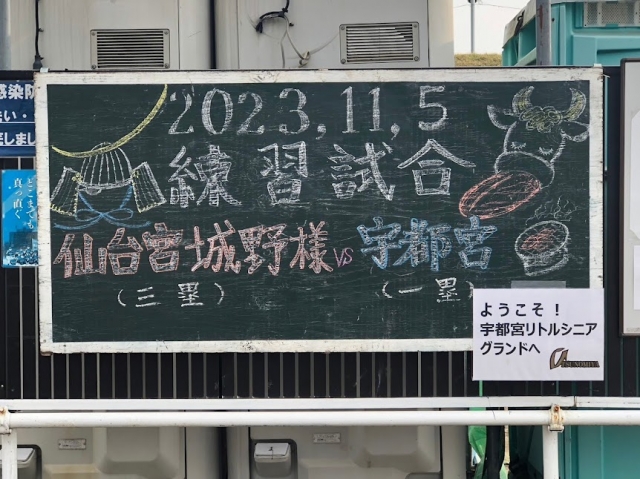 2023,11,5
練習試合
仙台宮城野様 vs 宇都宮
(三塁)
(一塁)
ようこそ!
宇都宮リトルシニア
グランドへ
UTSUNOMIYA
どこまでも
真っ直ぐ